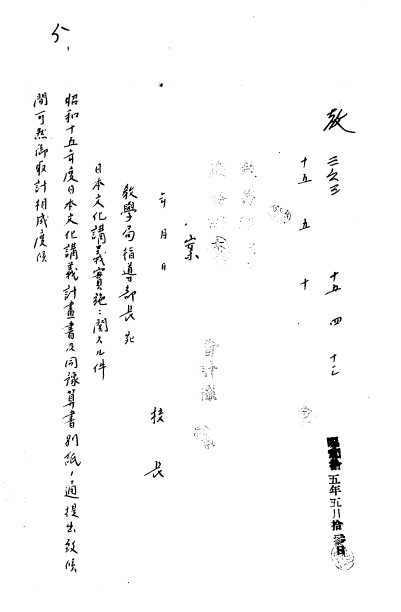 教 三六三 十五 四 十二
昭和拾五年五月拾 日
十五 五 十
案
年 月 日
校長
教學局指導部長宛
日本文化講義實施ニ関スル件
昭和十五年度日本文化講義計畫書及同豫算書別紙ノ通提出致候
間可然御取計相成度候